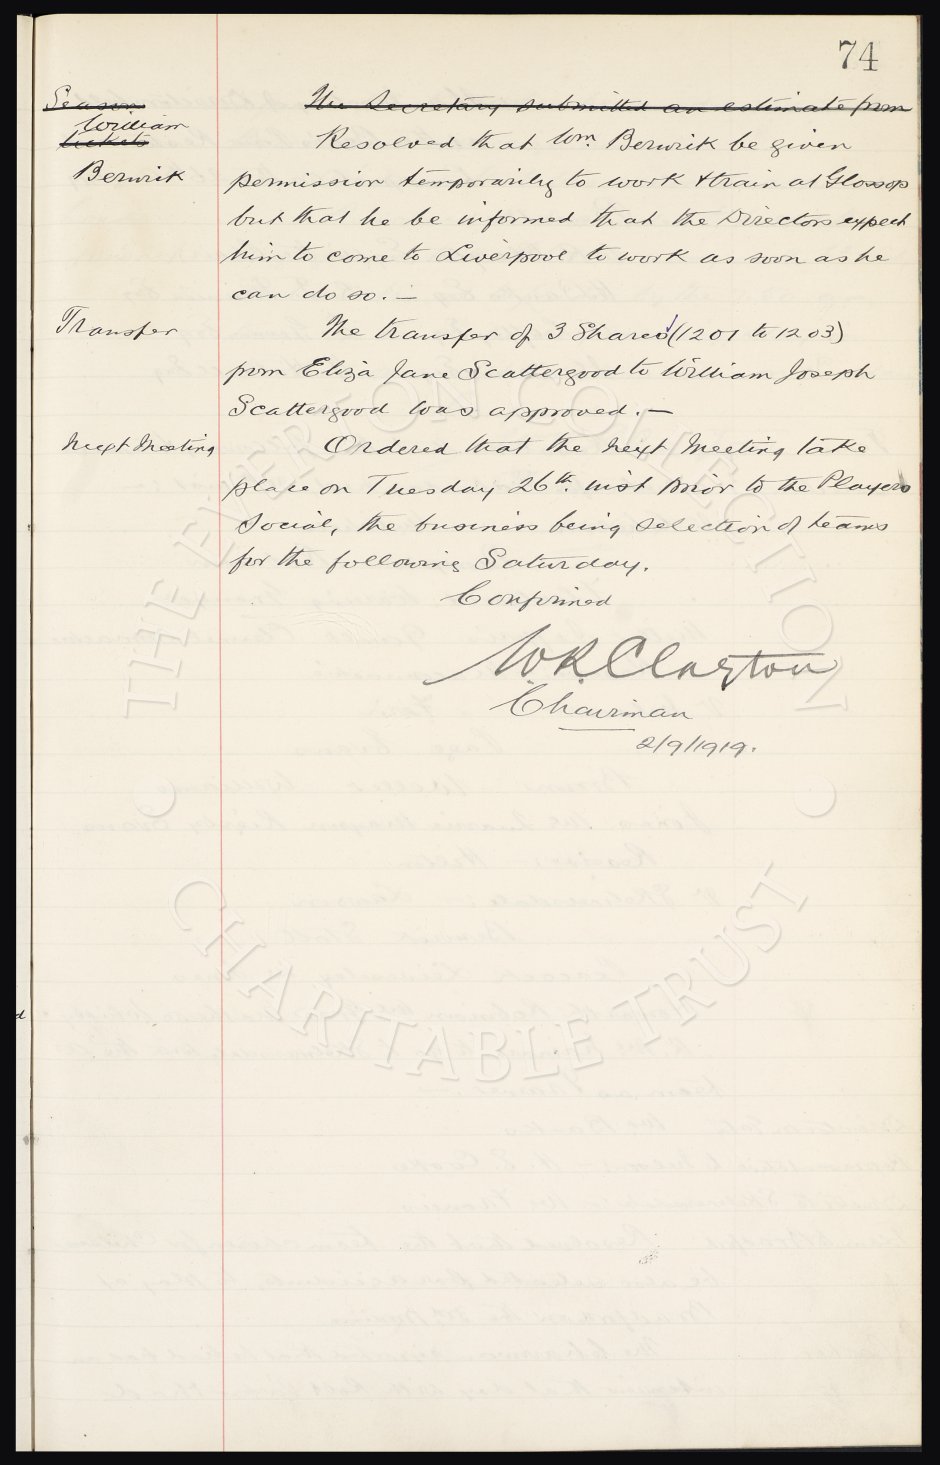 74
Season The Secretary submitted an estimate from
William
tickets Resolved that Wm. Berwick be given
Berwick permission temporarily to work & train at Glossop
but that he be informed that the Directors expect
him to come to Liverpool to work as soon as he
can do so. —
Transfer The transfer of 3 Shares (1201 to 1203)
from Eliza Jane Scattergood to William Joseph
Scattergood was approved. —
Next Meeting Ordered that the next Meeting take
place on Tuesday 26th. inst prior to the Players
Social, the business being selection of teams
for the following Saturday.
Confirmed
W.R. Clayton
Chairman
2/9/1919.
THE EVERTON COLLECTION
CHARITABLE TRUST